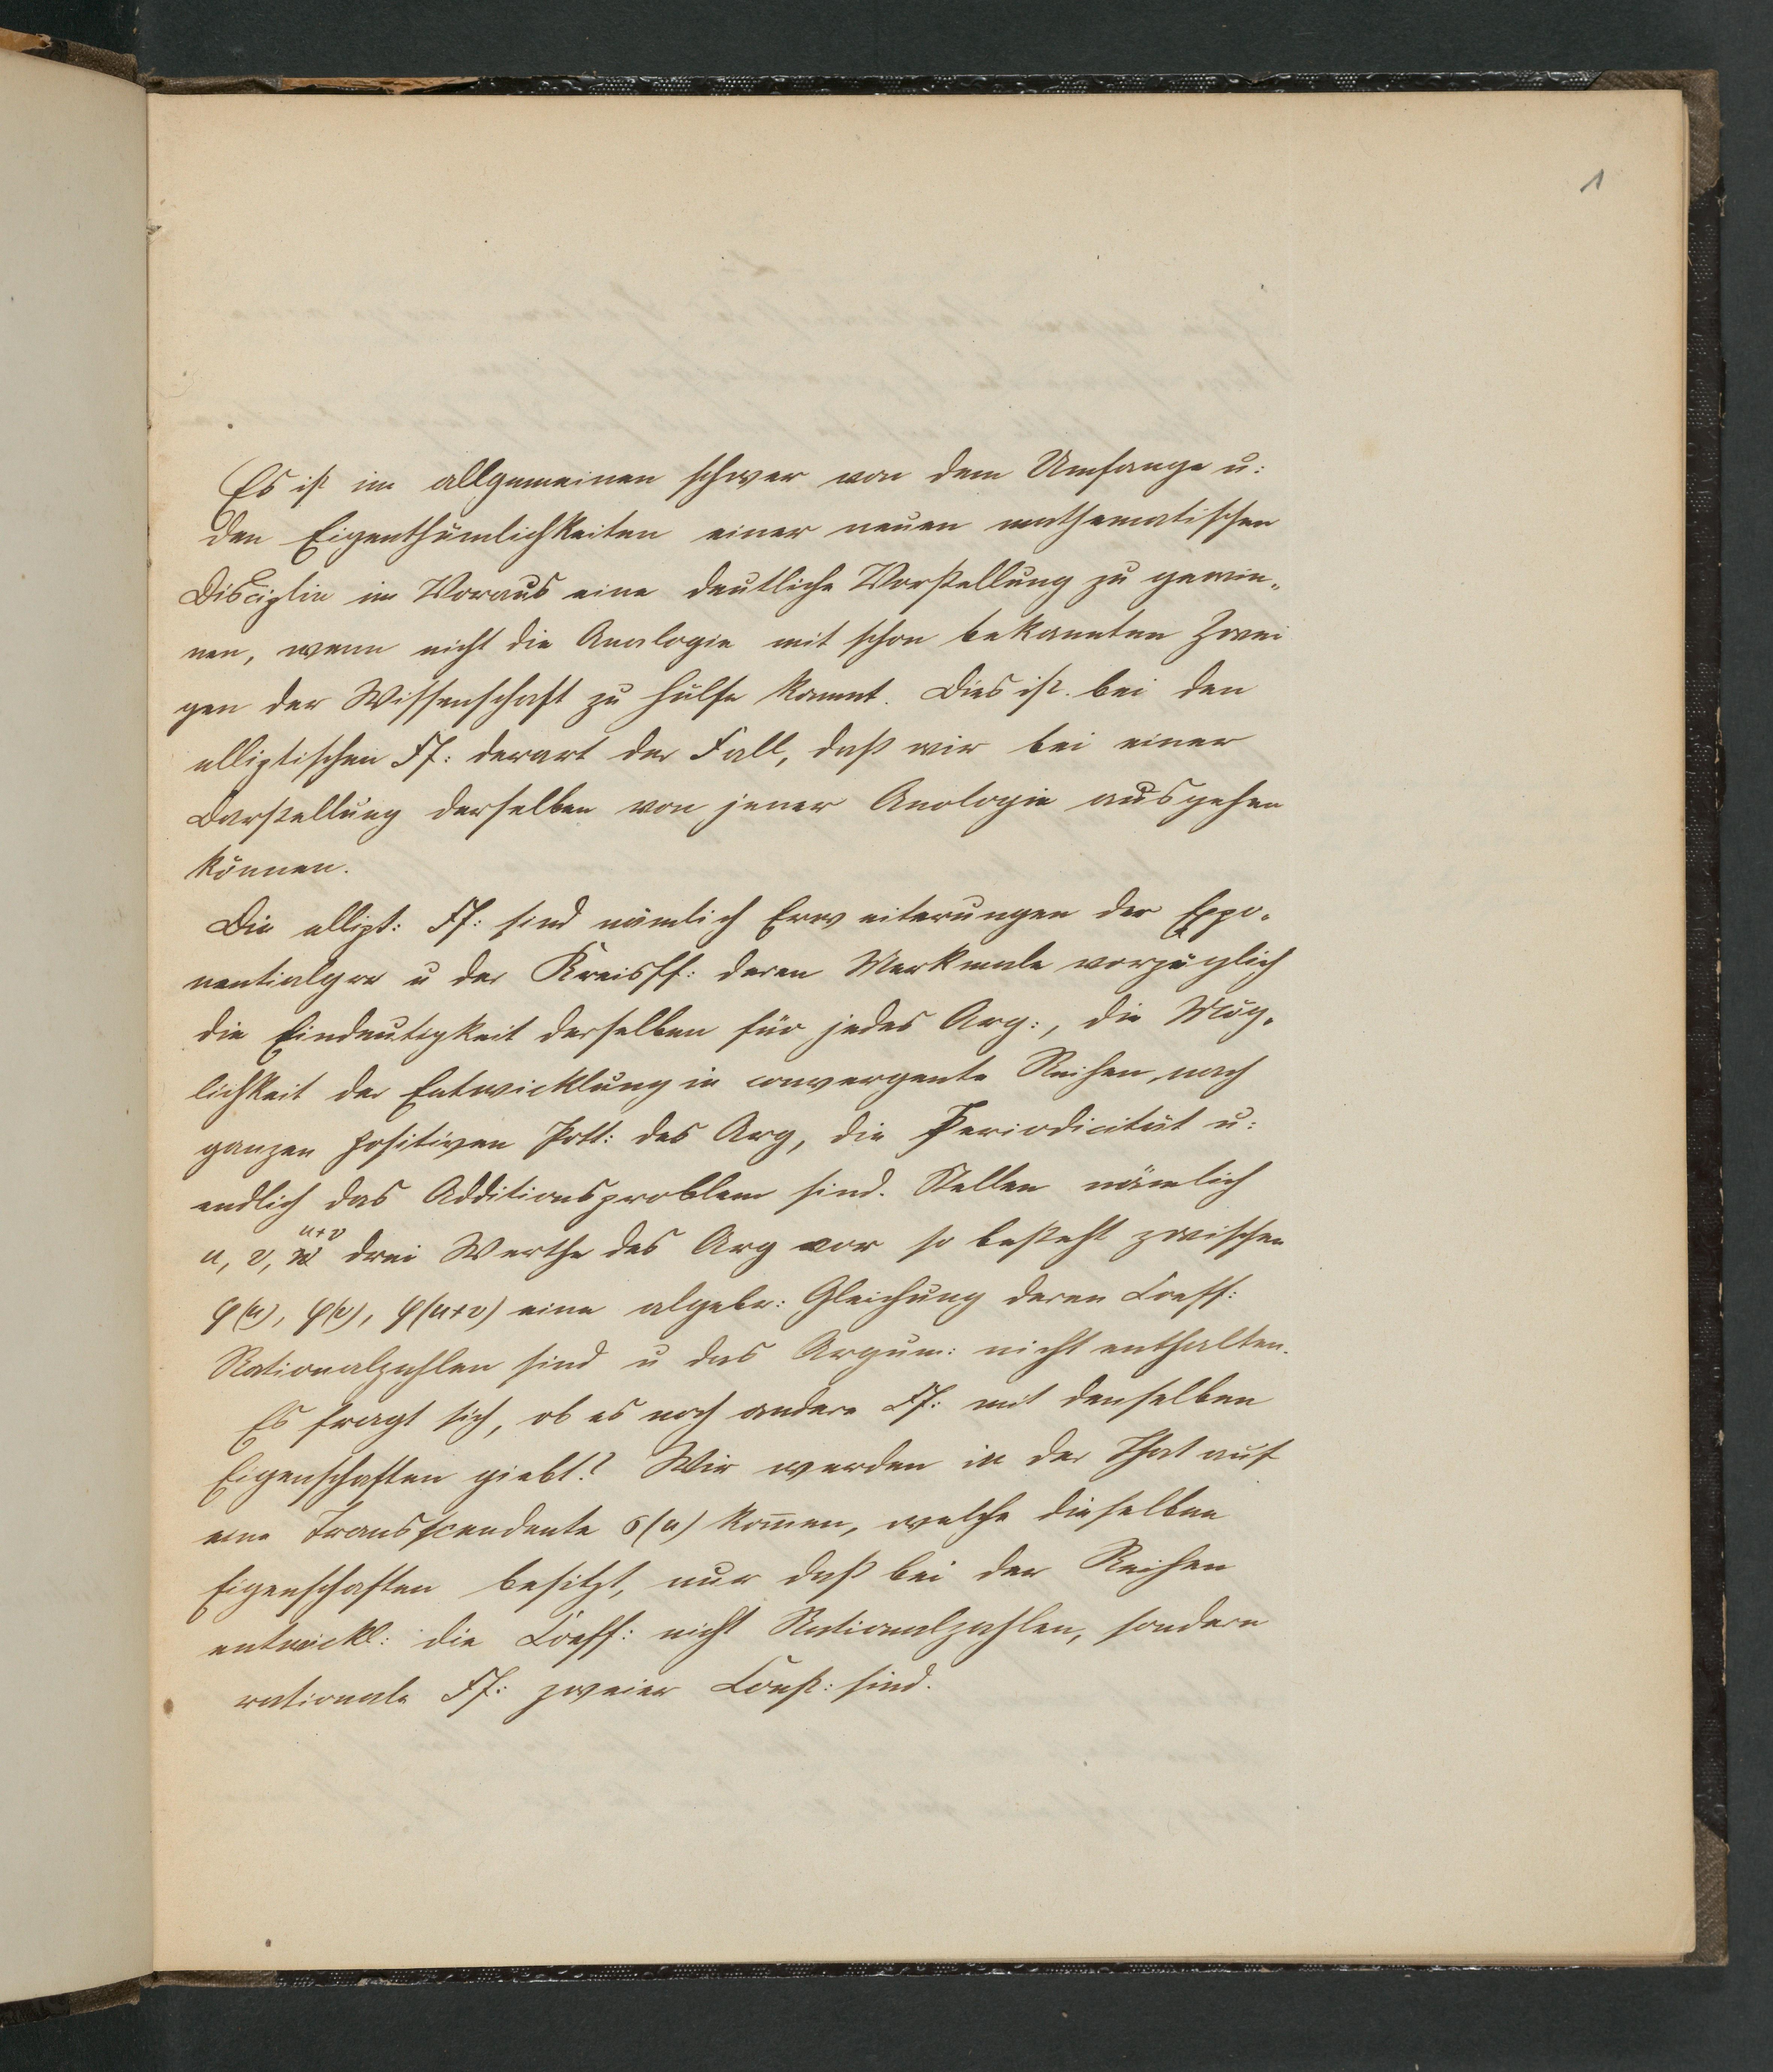 1
Es ist im allgemeinen schwer von dem Umfange u:
den Eigenthümlichkeiten einer neuen mathematischen
Disciplin im Voraus eine deutliche Vorstellung zu gewin„
nen, wenn nicht die Analogie mit schon bekannten Zwei
gen der Wissenschaft zu Hülfe kommt. Dies ist bei den
elliptischen Ff: derart der Fall, daß wir bei einer
Darstellung derselben von jener Anologie ausgehen
können.
Die ellipt: Ff: sind nämlich Erweiterungen der Expo„
nentialgrr u der Kreisff: deren Merkmale vorzüglich
die Eindeutigkeit derselben für jedes Arg:, die Mög„
lichkeit der Entwicklung in convergente Reihen nach
ganzen positiven Pott: des Arg, die Periodicität u:
endlich das Additionsproblem sind. Stellen nämlich
u, v, u+v drei Werthe des Arg vor so besteht zwischen
φ(u), φ(v), φ(u+v) eine algebr: Gleichung deren Coeff:
Rationalzahlen sind u das Argum: nicht enthalten.
Es fragt sich, ob es noch andere Ff: mit denselben
Eigenschaften giebt.? Wir werden in der That auf
eine Transscendente σ(u) kom̄en, welche dieselben
Eigenschaften besitzt, nur daß bei der Reihen
entwickl: die Coeff: nicht Rationalzahlen, sondern
rationale Ff: zweier Const: sind.